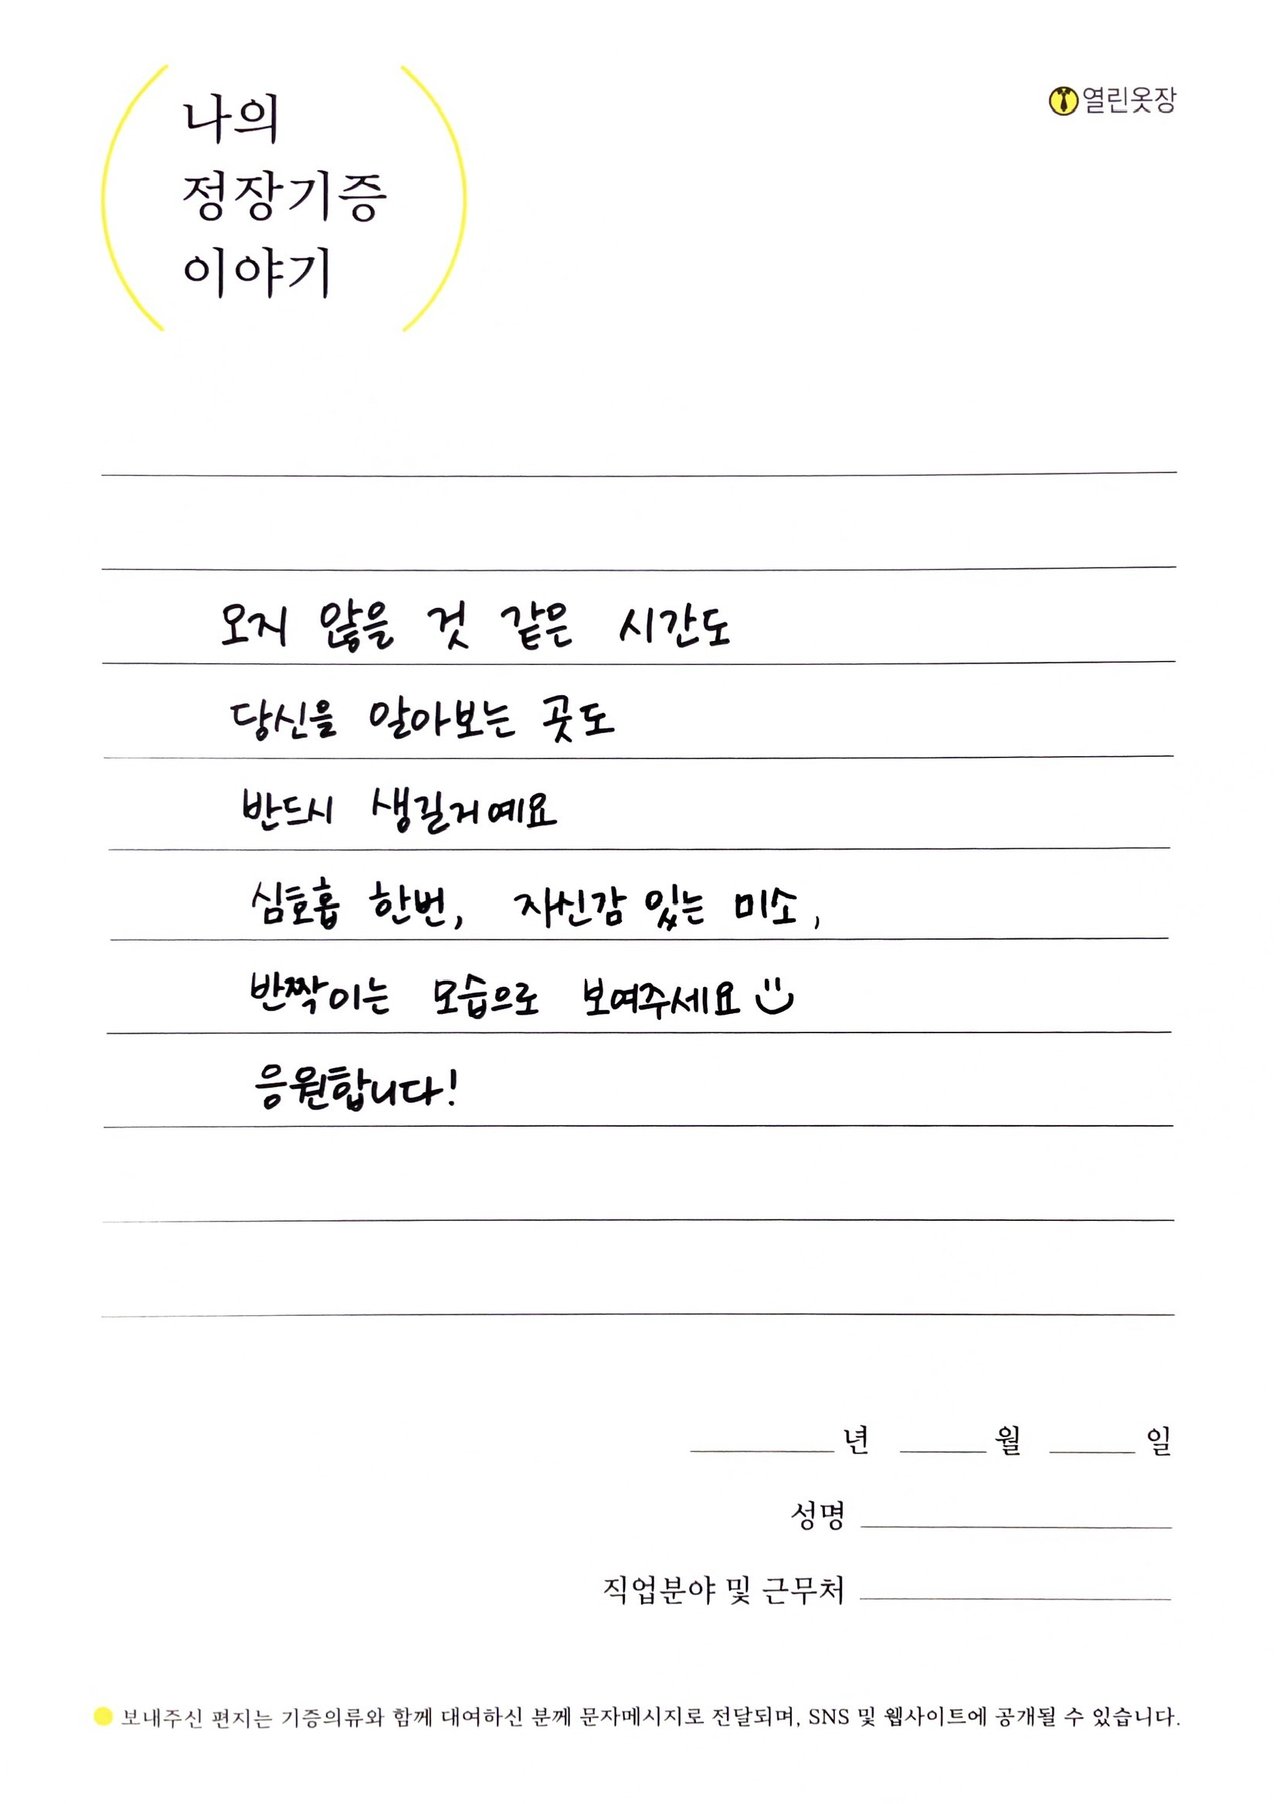 나의
정장기증
이야기
열린옷장
오지 않을 것 같은 시간도
당신을 알아보는 곳도
반드시 생길거예요
심호흡 한번, 자신감 있는 미소,
반짝이는 모습으로 보여주세요
응원합니다!
년 월 일
성명
직업분야 및 근무처
보내주신 편지는 기증의류와 함께 대여하신 분께 문자메시지로 전달되며, SNS 및 웹사이트에 공개될 수 있습니다.